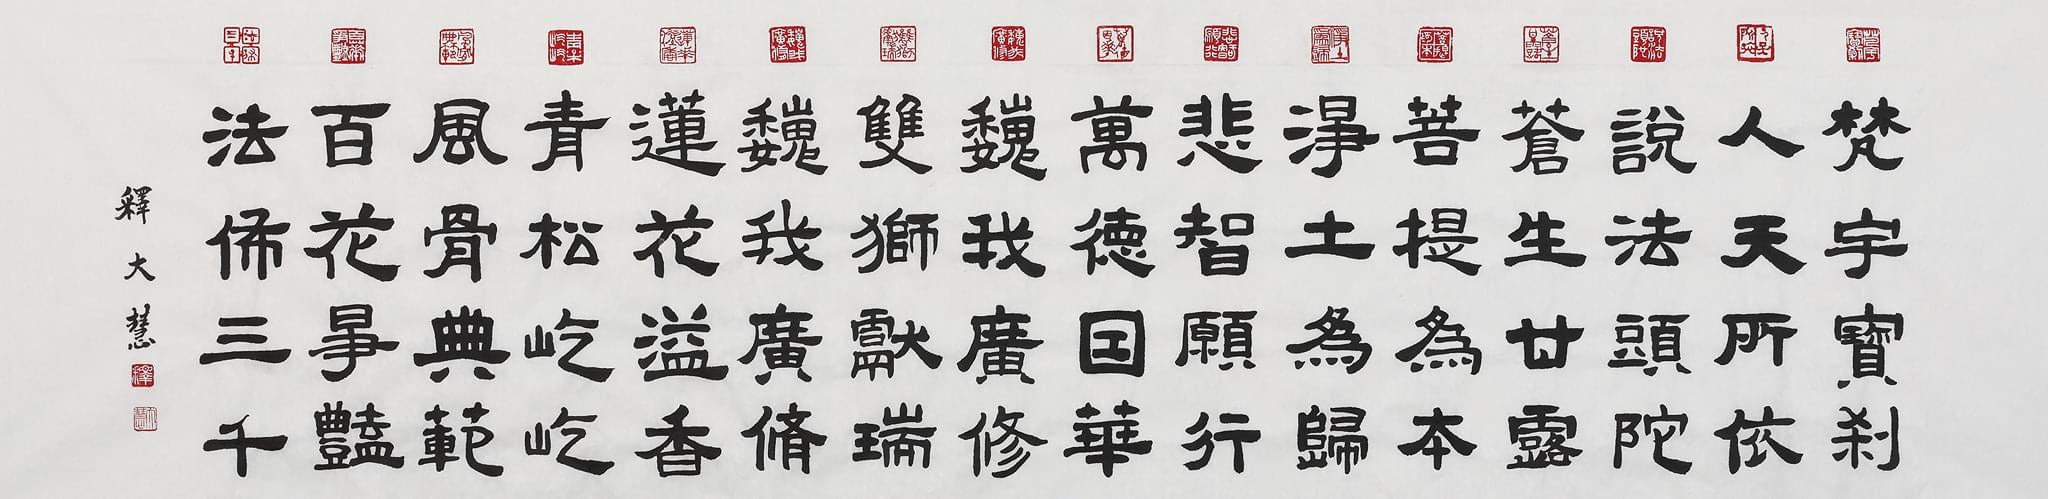 梵宇寶刹
人天所依
說法頭陀
蒼生甘露
菩提為本
淨土為歸
悲智願行
萬德囯華
巍我廣修
雙獅獻瑞
巍我廣脩
蓮花溢香
青松屹屹
風骨典範
百花爭豔
法佈三千
釋大慧